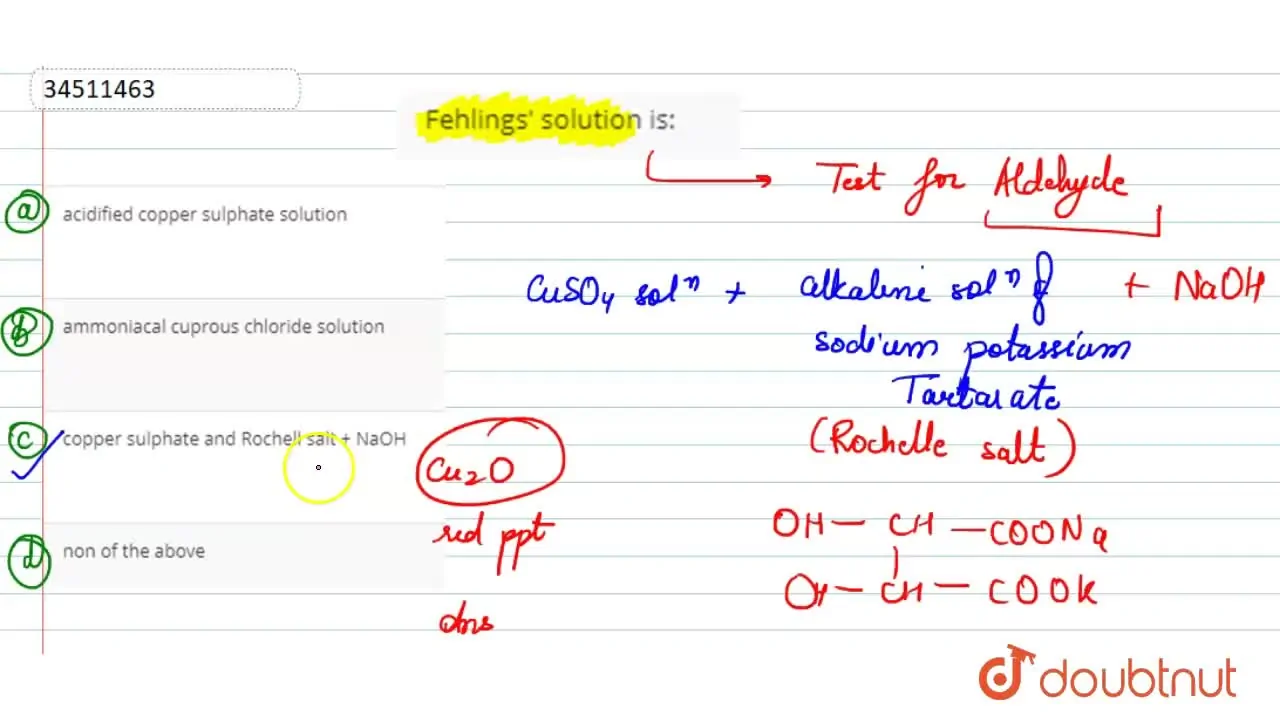 34511463
Fehlings' solution is:
Test for Aldehyde
a acidified copper sulphate solution
CuSO4 solⁿ + alkaline solⁿ of + NaOH
sodium potassium
Tartarate
(Rochelle salt)
b ammoniacal cuprous chloride solution
c copper sulphate and Rochell salt + NaOH
Cu2O
red ppt
OH — CH — COONa
OH — CH — COOK
d non of the above
Ans
doubtnut